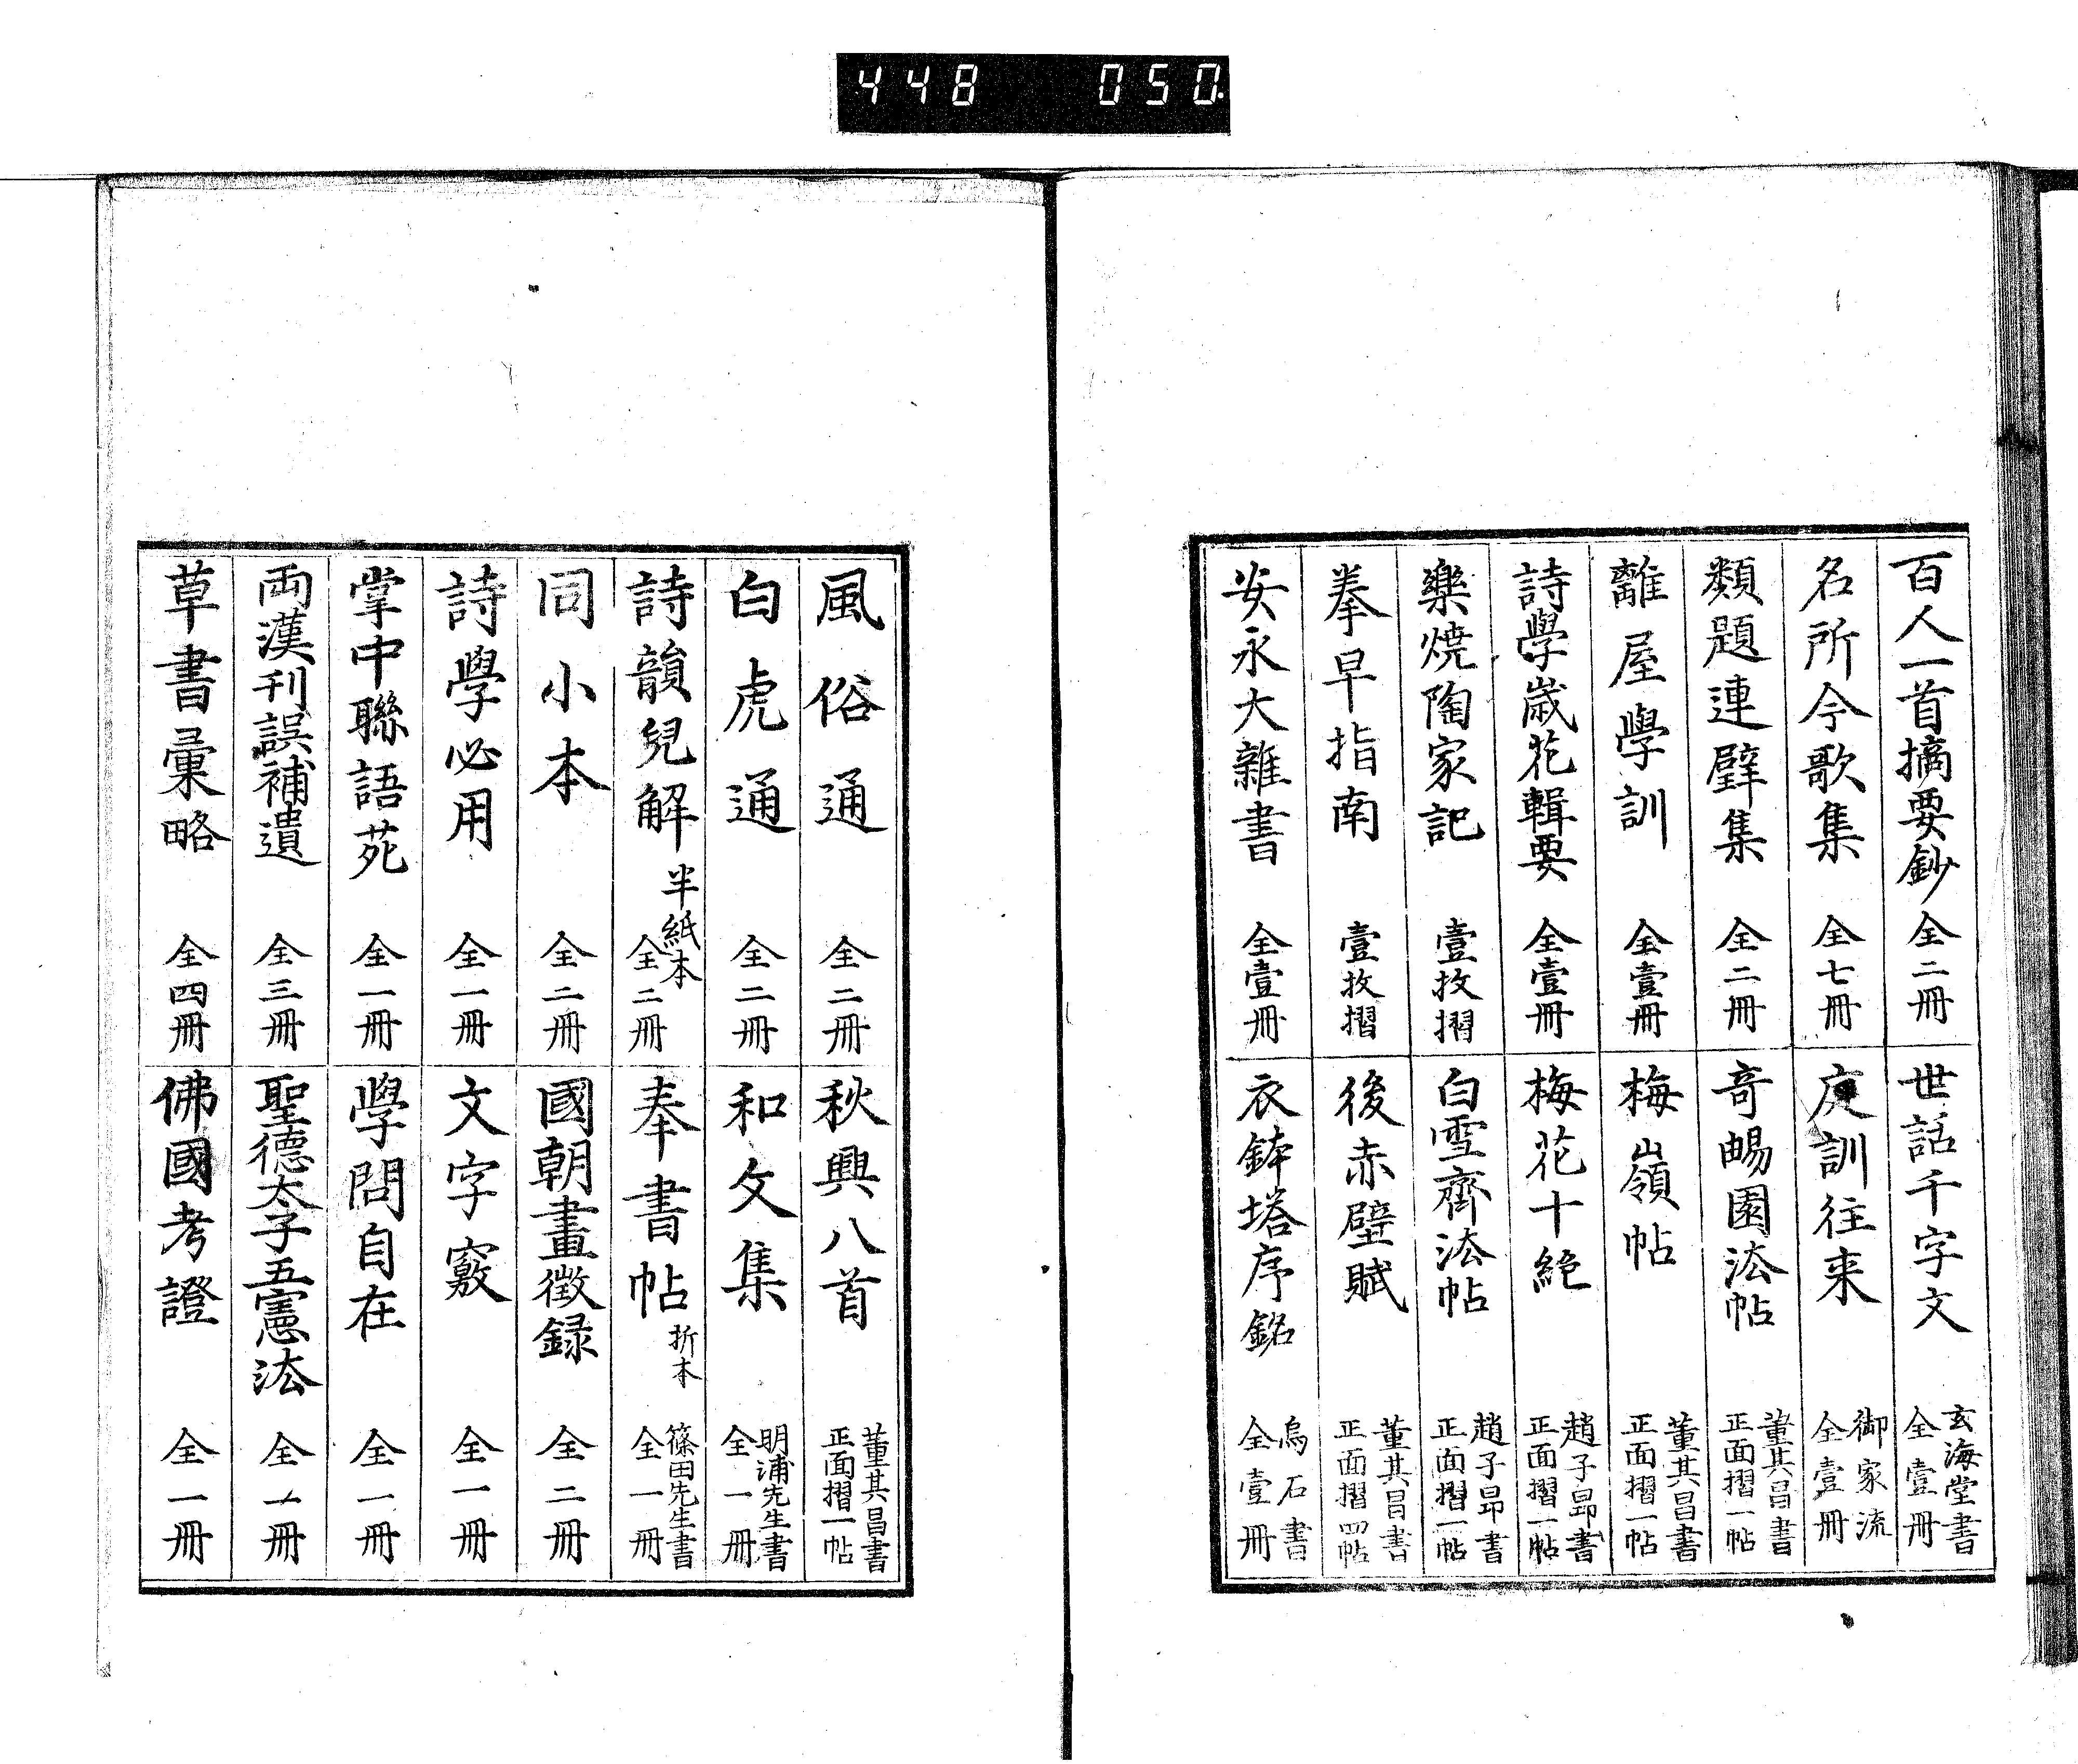 448 050
百人一首摘要鈔 全二冊
世話千字文 玄海堂書 全壹冊
名所今歌集 全七冊
庭訓往来 御家流 全壹冊
類題連璧集 全二冊
奇賜園法帖 董其昌書 正面摺一帖
離屋學訓 全壹冊
梅嶺帖 董其昌書 正面摺一帖
詩學歳花輯要 全壹冊
梅花十絶 趙子昂書 正面摺一帖
樂焼陶家記 壹枚摺
白雪齋法帖 趙子昂書 正面摺一帖
拳早指南 壹枚摺
後赤壁賦 董其昌書 正面摺四帖
安永大雜書 全壹冊
衣鉢塔序銘 烏石書 全壹冊
風俗通 全二冊
秋興八首 董其昌書 正面摺一帖
白虎通 全二冊
和文集 明浦先生書 全一冊
詩韻兒解 半紙本 全二冊
奉書帖 折本 篠田先生書 全一冊
同小本 全二冊
國朝畫徴録 全二冊
詩學必用 全一冊
文字竅 全一冊
掌中聯語苑 全一冊
學問自在 全一冊
両漢刊誤補遺 全三冊
聖徳太子五憲法 全一冊
草書彙略 全四冊
佛國考證 全一冊